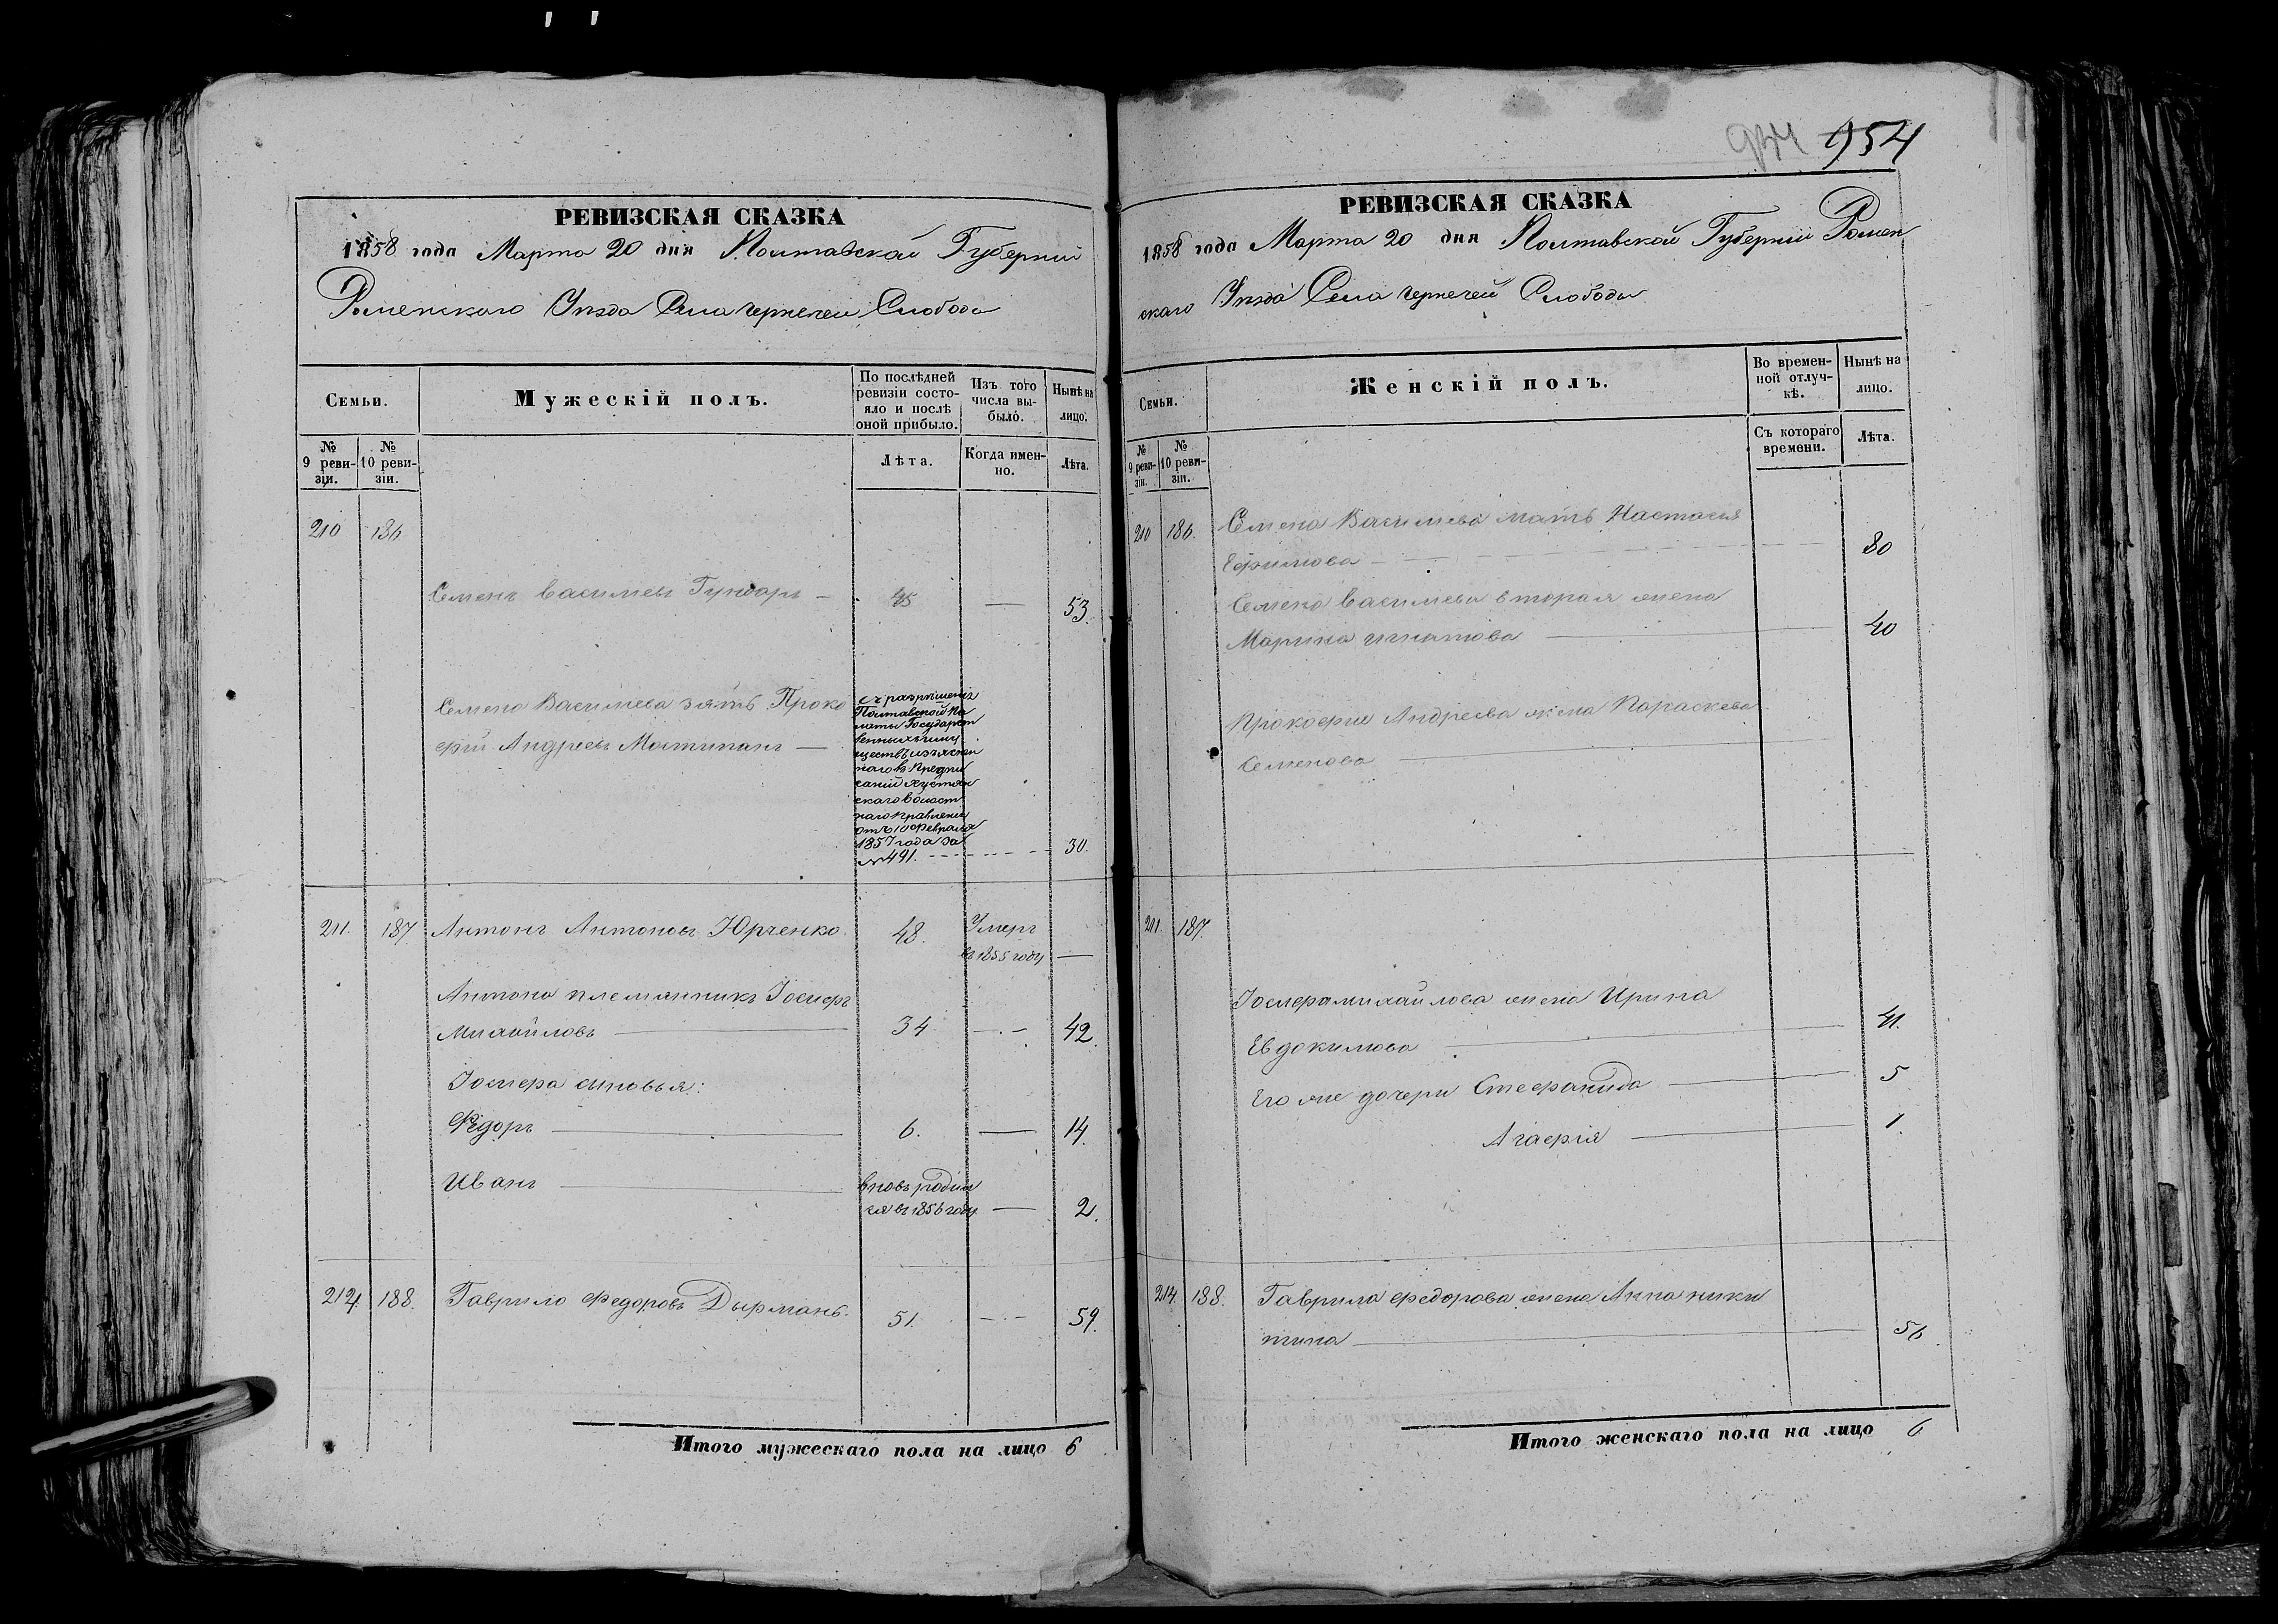 934 954
РЕВИЗСКАЯ СКАЗКА
1858 года Марта 20 дня Полтавской Губернии
Роменского Уезда Села Чернечей Слободы
Семьи.
Мужескій полъ.
По послѣдней
ревизіи состо-
яло и послѣ
оной прибыло.
Изъ того
числа вы-
было.
Нынѣ на
лицо.
№
9 реви-
зіи.
№
10 реви-
зіи.
Лѣта.
Когда имен-
но.
Лѣта.
210 186
Семенъ Васильевъ Гундарь — 45 — 53.
Семена Васильева зять Проко
фій Андреевъ Мостипанъ —
съ разрѣшенія
Полтавской Па
латы Государст
венныхъ иму
ществъ
наго въ Предпи
саніи
скаго Волост
наго Правленія
отъ 10 Февраля
1857 года за
№ 491. 30.
211. 187 Антонъ Антоновъ Юрченко. 48. Умеръ
въ 1855 году —
Антона племянникъ Іосифъ
Михайловъ — 34 — 42.
Іосифа сыновья:
Федоръ — 6. — 14.
Иванъ — вновь родил
ся въ 1856 году — 2.
214. 188. Гаврило Федоровъ Дырманъ. 51. — 59.
Итого мужескаго пола на лицо 6
РЕВИЗСКАЯ СКАЗКА
1858 года Марта 20 дня Полтавской Губерніи Ромен
скаго Уезда Села Чернечей Слободы
Семьи.
Женскій полъ.
Во времен-
ной отлуч-
кѣ.
Нынѣ на
лицо.
№
9 реви-
зіи.
№
10 реви-
зіи.
Съ котораго
времени.
Лѣта.
210 186. Семена Васильева мать Настасья
Ефимова — 80
Семена Васильева вторая жена
Марина Игнатова — 40
Прокофия Андреева жена Параскева
Семенова —
211. 187.
Іосифа Михайлова жена Ирина
Евдокимова — 41.
Его же дочери Стефанида — 5
Агафія — 1.
214. 188. Гаврила Федорова жена Анна Ники
тина — 56
Итого женскаго пола на лицо 6